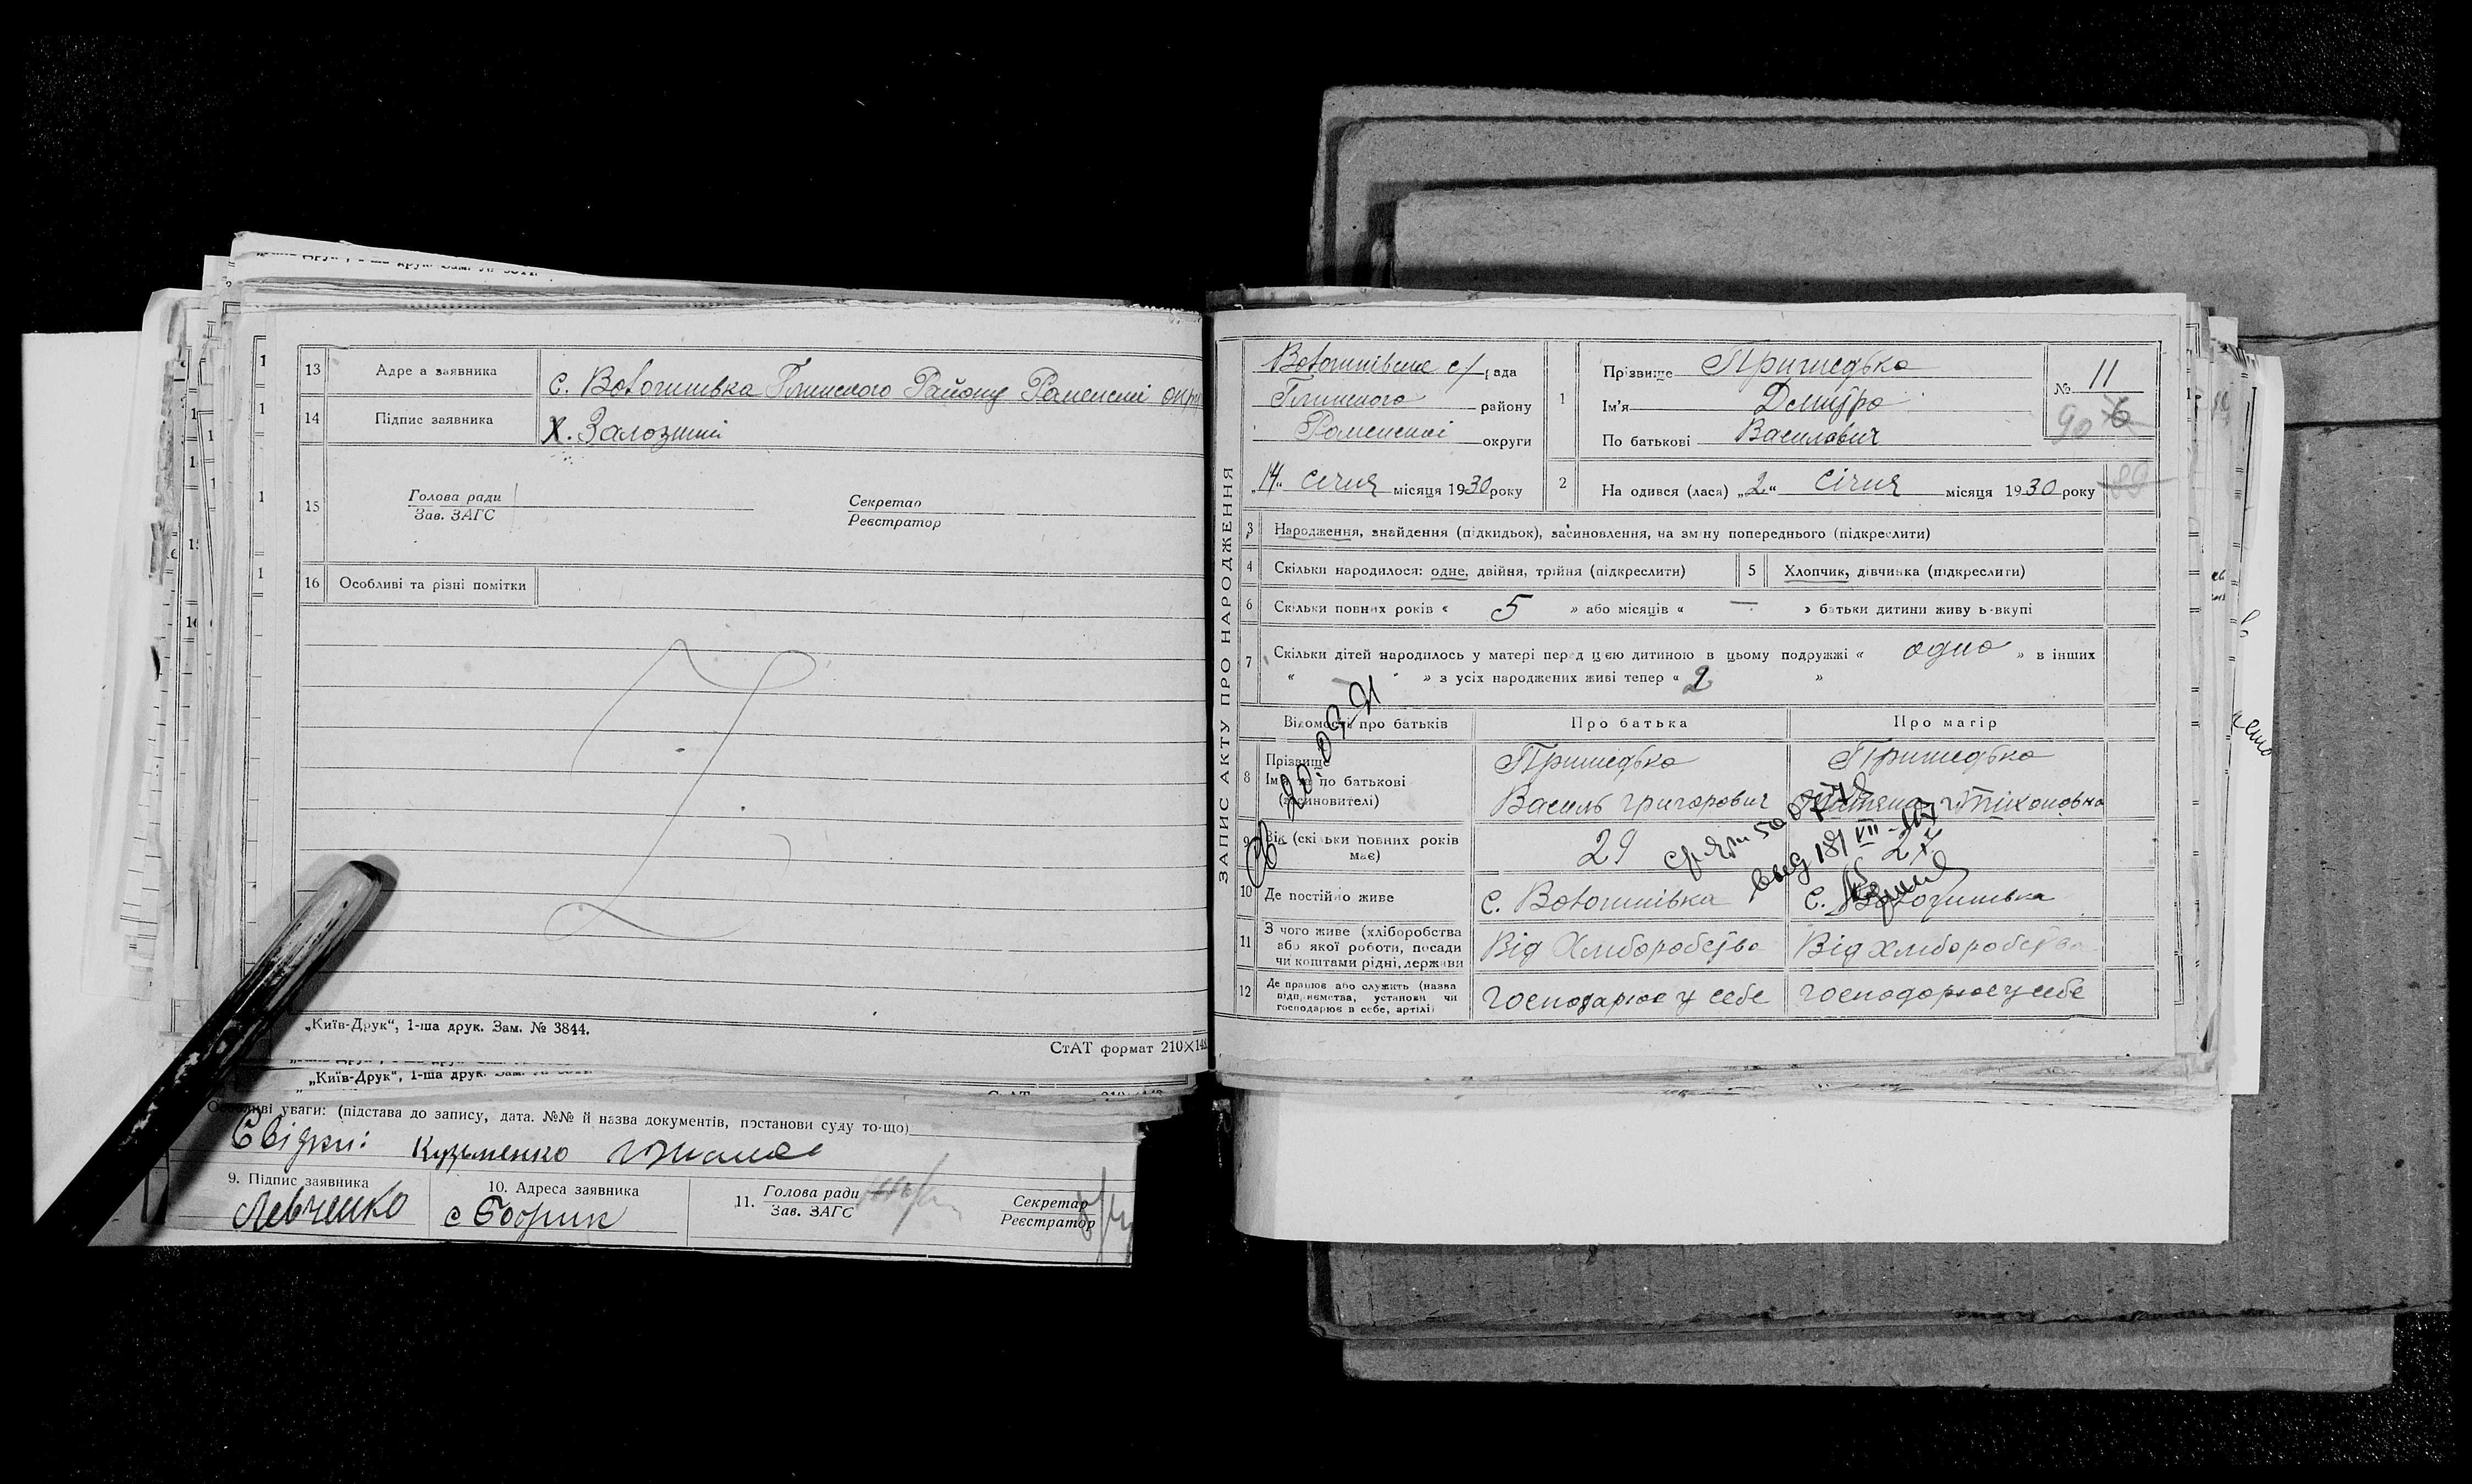 13 Адре а заявника с. Вовошивка Глинского Району Роменскі окр
14 Підпис заявника Х. Залозний
15 Голова ради
Зав. ЗАГС
Секретар
Реєстратор
16 Особливі та різні помітки
„Київ-Друк“, 1-ша друк. Зам. № 3844.
СтАТ формат 210×148
„Київ-Друк“, 1-ша друк.
Особливі уваги: (підстава до запису, дата. №№ й назва документів, постанови суду то-що)
Свідки: Кузьменко
9. Підпис заявника
Левченко
10. Адреса заявника
с Бобрик
11. Голова ради
Зав. ЗАГС
Секретар
Реєстратор
ЗАПИС АКТУ ПРО НАРОДЖЕННЯ
с/рада
Глинского району
Роменскої округи
„14“ Січня місяця 1930 року
1 Прізвище Пришедько
Ім'я Дмитро
По батькові Василович
№ 11
90
2 На одився (лася) „2“ Січня місяця 1930 року
3 Народження, знайдення (підкидьок), засиновлення, на зміну попереднього (підкреслити)
4 Скільки народилося: одне, двійня, трійня (підкреслити)
5 Хлопчик, дівчинка (підкреслити)
6 Скільки повних років « 5 » або місяців « — » батьки дитини живу ь вкупі
7 Скільки дітей народилось у матері перед цією дитиною в цьому подружжі « одно » в інших
« - » з усіх народжених живі тепер « 2 »
Відомості про батьків Про батька Про матір
8 Прізвище
Ім'я та по батькові
(засиновителі)
Пришедько
Василь Григорович
Пришедько
9 Вік (скільки повних років має) 29
10 Де постійно живе
11 З чого живе (хліборобства
або якої роботи, посади
чи коштами рідні, держави
Від Хліборобства
Від хліборобства
12 Де працює або служить (назва
підприємства, установи чи
господарює в себе, артілі)
господарює у себе
господорює у себе